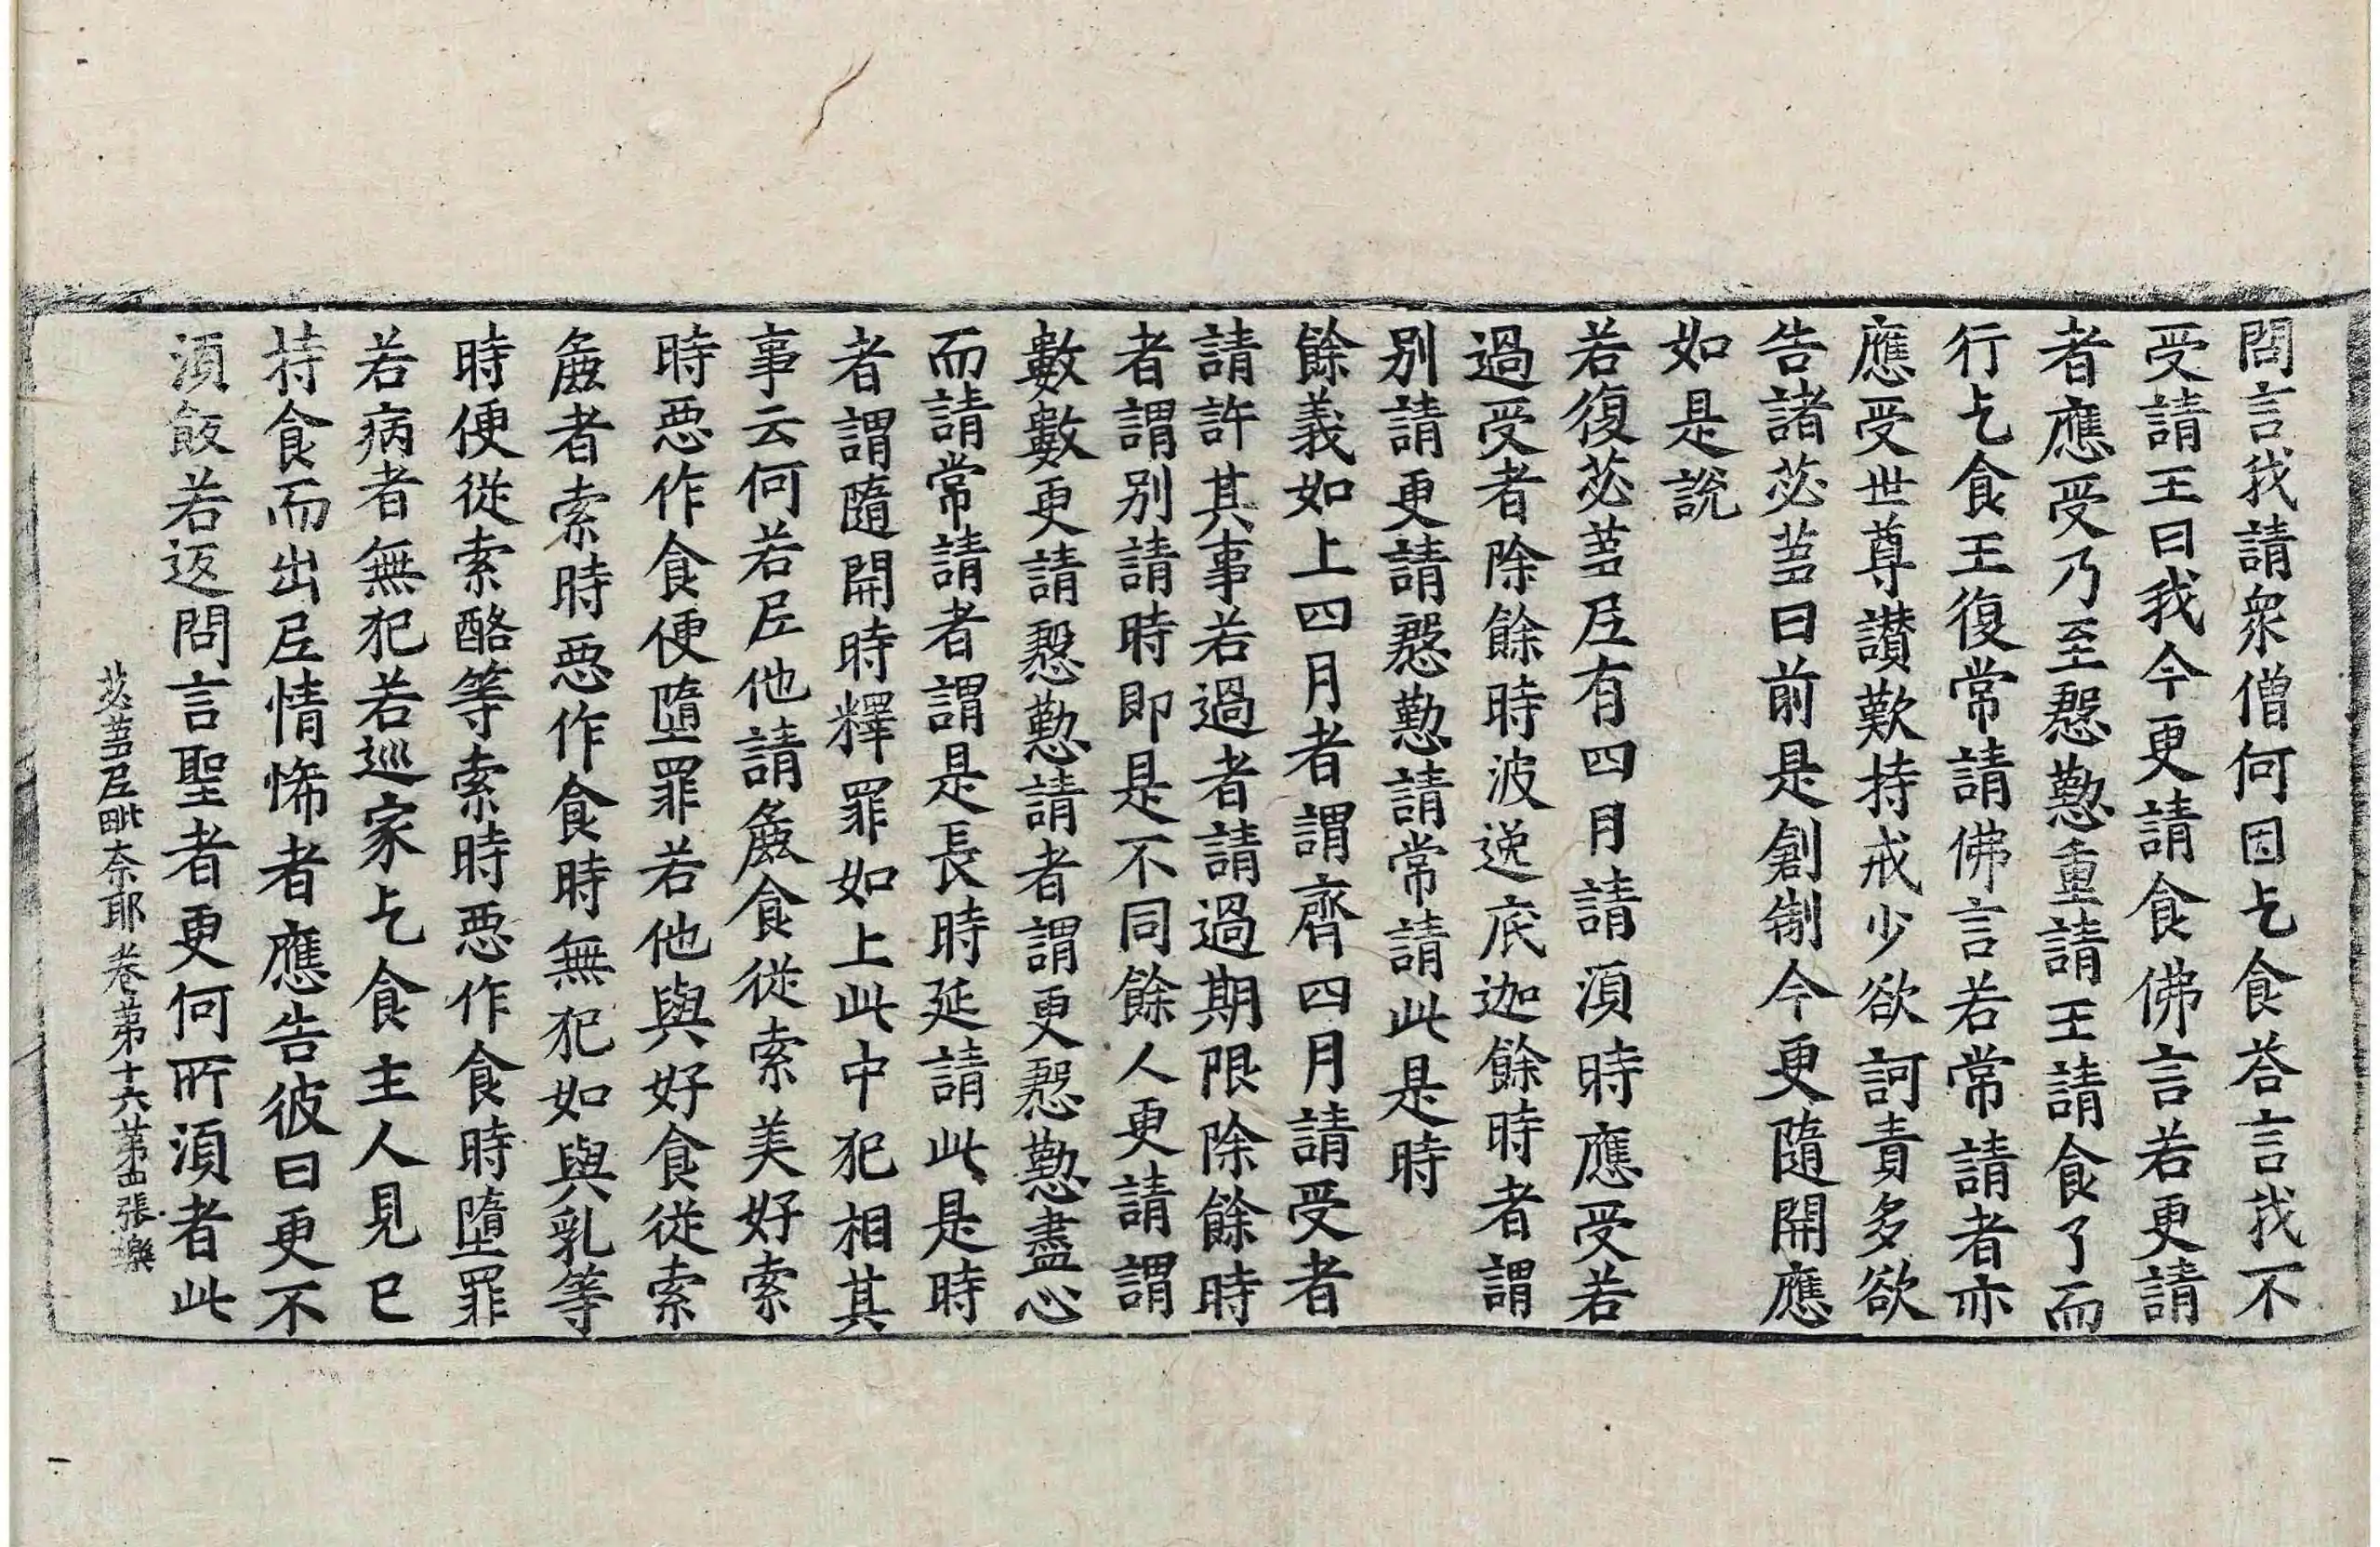 問言我請衆僧何因乞食荅言我不
受請王曰我今更請食佛言若更請
者應受乃至慇懃重請王請食了而
行乞食王復常請佛言若常請者亦
應受世尊讃歎持戒少欲訶責多欲
告諸苾芻曰前是創制今更隨開應
如是説
若復苾芻尼有四月請湏時應受若
過受者除餘時波逸底迦餘時者謂
別請更請慇懃請常請此是時
餘義如上四月者謂齊四月請受者
請許其事若過者請過期限除餘時
者謂別請時即是不同餘人更請謂
數數更請慇懃請者謂更慇懃盡心
而請常請者謂是長時延請此是時
者謂隨開時釋罪如上此中犯相其
事云何若尼他請麁食從索美好索
時惡作食便墮罪若他與好食從索
麁者索時惡作食時無犯如與乳等
時便從索酪等索時惡作食時墮罪
若病者無犯若巡家乞食主人見已
持食而出尼情悕者應告彼曰更不
湏飯若返問言聖者更何所湏者此
苾芻尼毗奈耶卷第十六第四張樂